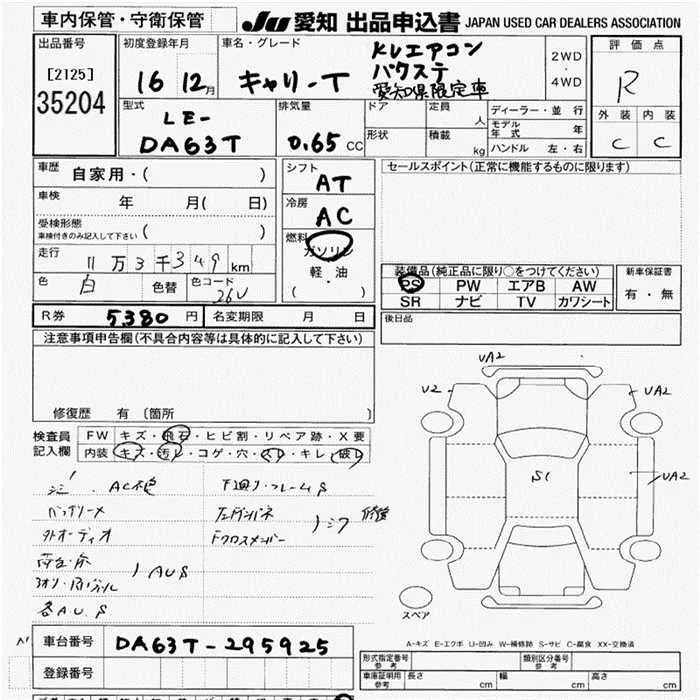 車内保管・守衛保管
JU 愛知 出品申込書 JAPAN USED CAR DEALERS ASSOCIATION
出品番号
[2125]
35204
初度登録年月
16 12月
車名・グレード
キャリーT
KUエアコン
パワステ
愛知県限定車
2WD
・
4WD
評価点
R
外装 内装
C C
型式
LE-
DA63T
排気量
0.65 CC
ドア
形状
定員
人
積載
kg
ディーラー・並行
モデル年式 年
ハンドル 左・右
車歴
自家用・( )
車検
年 月( 日)
受検形態
車検付きのみ記入して下さい ( )
走行
11万3千349km
色 白 色替 色コード 26U
シフト
AT
冷房
AC
燃料
ガソリン
・
軽油
・
( )
セールスポイント(正常に機能するものに限ります)
装備品(純正品に限り○をつけてください)
PS PW エアB AW
SR ナビ TV カワシート
新車保証書
有・無
R券 5380 円 名変期限 月 日
後日品
注意事項申告欄(不具合内容等は具体的に記入して下さい)
修復歴 有 〔箇所 〕
検査員
記入欄
FW キズ・飛石・ヒビ割・リペア跡・X要
内装 キズ・汚レ・コゲ・穴・スレ・キレ・破レ
外オーディオ
各AU.S
下廻り・フレームS
Fクロスメンバー
修復
UA2
U2
UA2
S1
UA2
スペア
A-キズ E-エクボ U-凹み W-補修跡 S-サビ C-腐食 XX-交換済
車台番号 DA63T-295925
登録番号
形式指定番号
参考
類別区分番号
参考
車庫証明用
参考
長さ cm 幅 cm 高さ cm